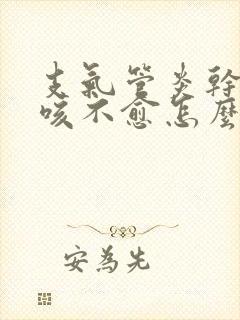 支氣管炎幹
咳不愈怎麼
安為先